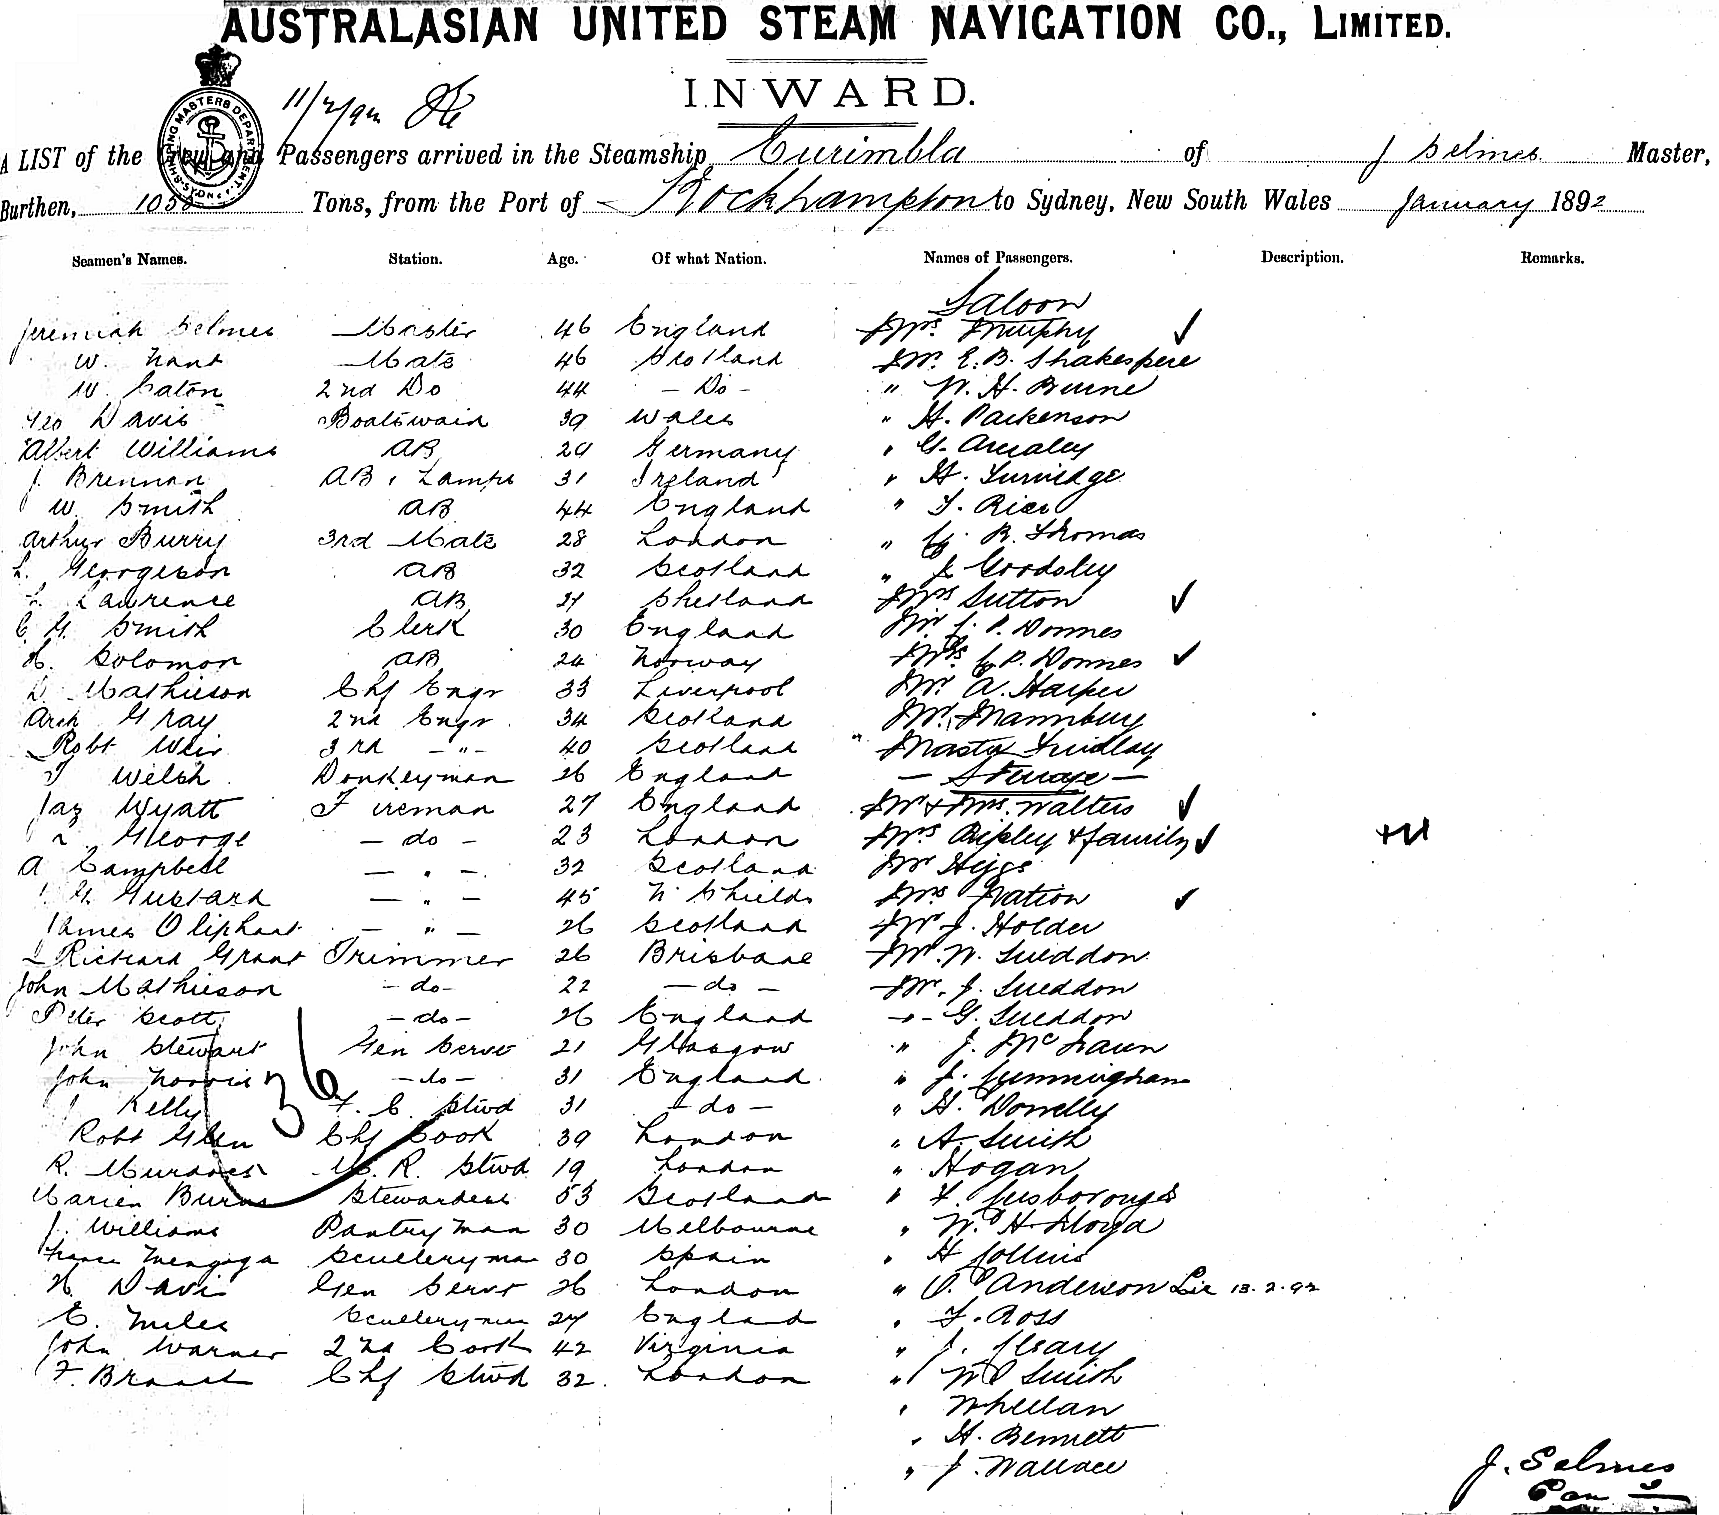 AUSTRALASIAN UNITED STEAM NAVIGATION CO., LIMITED.
INWARD.
A LIST of the Crew and Passengers arrived in the Steamship Curimbla of J Selmes Master,
Burthen, 1058 Tons, from the Port of Rockhampton to Sydney, New South Wales January 1892
Seamen's Names. Station. Age. Of what Nation. Names of Passengers. Description. Remarks.
Saloon
Jeremiah Selmes Master 46 England Mrs. Murphy
W. Mate 46 Scotland Mr. E. B. Shakespere
W. Eaton 2nd Do 44 - Do - " W. H. Burne
Geo Davis Boatswain 39 Wales " H. Parkenson
Albert Williams AB 29 Germany " G.
J. Brennan AB, Lamps 31 Ireland " H. Turvidge
W. Smith AB 44 England "
Arthur Burry 3rd Mate 28 London " R. Thomas
L. Georgeson AB 32 Scotland " J Goodsley
L. Lawrence AB 21 Shetland Mrs Sutton
C. H. Smith Clerk 30 England Mr P. Donnes
H. Solomon AB 24 Norway Mrs P. Donnes
D. Mathieson Chf Engr 33 Liverpool Mr. A. Harper
Arch Gray 2nd Engr. 34 Scotland
Robt Weir 3rd - " - 40 Scotland " Master Findlay
Welsh Donkeyman 26 England - Steerage -
Jas Wyatt Fireman 27 England Mr & Mrs. Walters
George - do - 23 London Mrs Ripley & family
A Campbell - " - 32 Scotland Mr Higgs
Gustard - " - 45 N Shields Mrs Nation
James Oliphant - " - 26 Scotland Mr J. Holder
Richard Grant Trimmer 26 Brisbane Mr. W. Sneddon
John Mathieson - do - 22 - do - Mr. J. Sneddon
Peter Scott - do - 26 England - " - G. Sneddon
John Stewart Gen Servt 21 Glasgow " J. McLaun
John Norris - do - 31 England " J. Cunningham
J Kelly F. C. Stwd 31 - do - " H. Donnelly
36
Robt Glen Chf Cook 39 London " A. Smith
R. M. R. Stwd 19 London " Hogan
Marien Burns Stewardess 53 Scotland "
J. Williams Pantryman 30 Melbourne " W. H. Lloyd
Scullery man 30 Spain " H Collins
H Davis Gen Servt 26 London " Anderson Lie 13.2.92
E. Miles Sculleryman 24 England " F. Ross
John Warner 2nd Cook 42 Virginia " J. Cleary
F. Brandt Chf Stwd 32. London " W Smith
" Whellan
" H. Bennett
" J. Wallace
J. Selmes